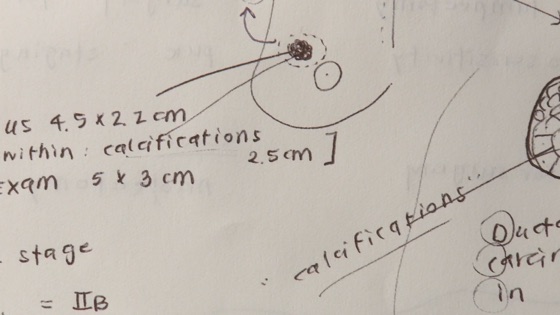 us 4.5 x 2.2 cm
within : calcifications
2.5 cm ]
Exam 5 x 3 cm
stage
= IIB
"calcifications"
Ducta
carcin
in